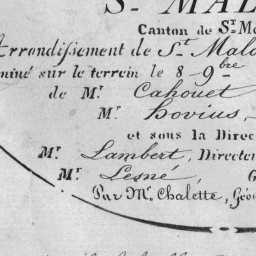 St MAL
Canton de St Mo
Arrondissement de St Malo
miné sur le terrein le 8 9bre
de Mr Cahouet
Mr Hovius,
et sous la Direc
Mr Lambert, Directeu
Mr Lesné, G
Par Mr Chalette, Géo